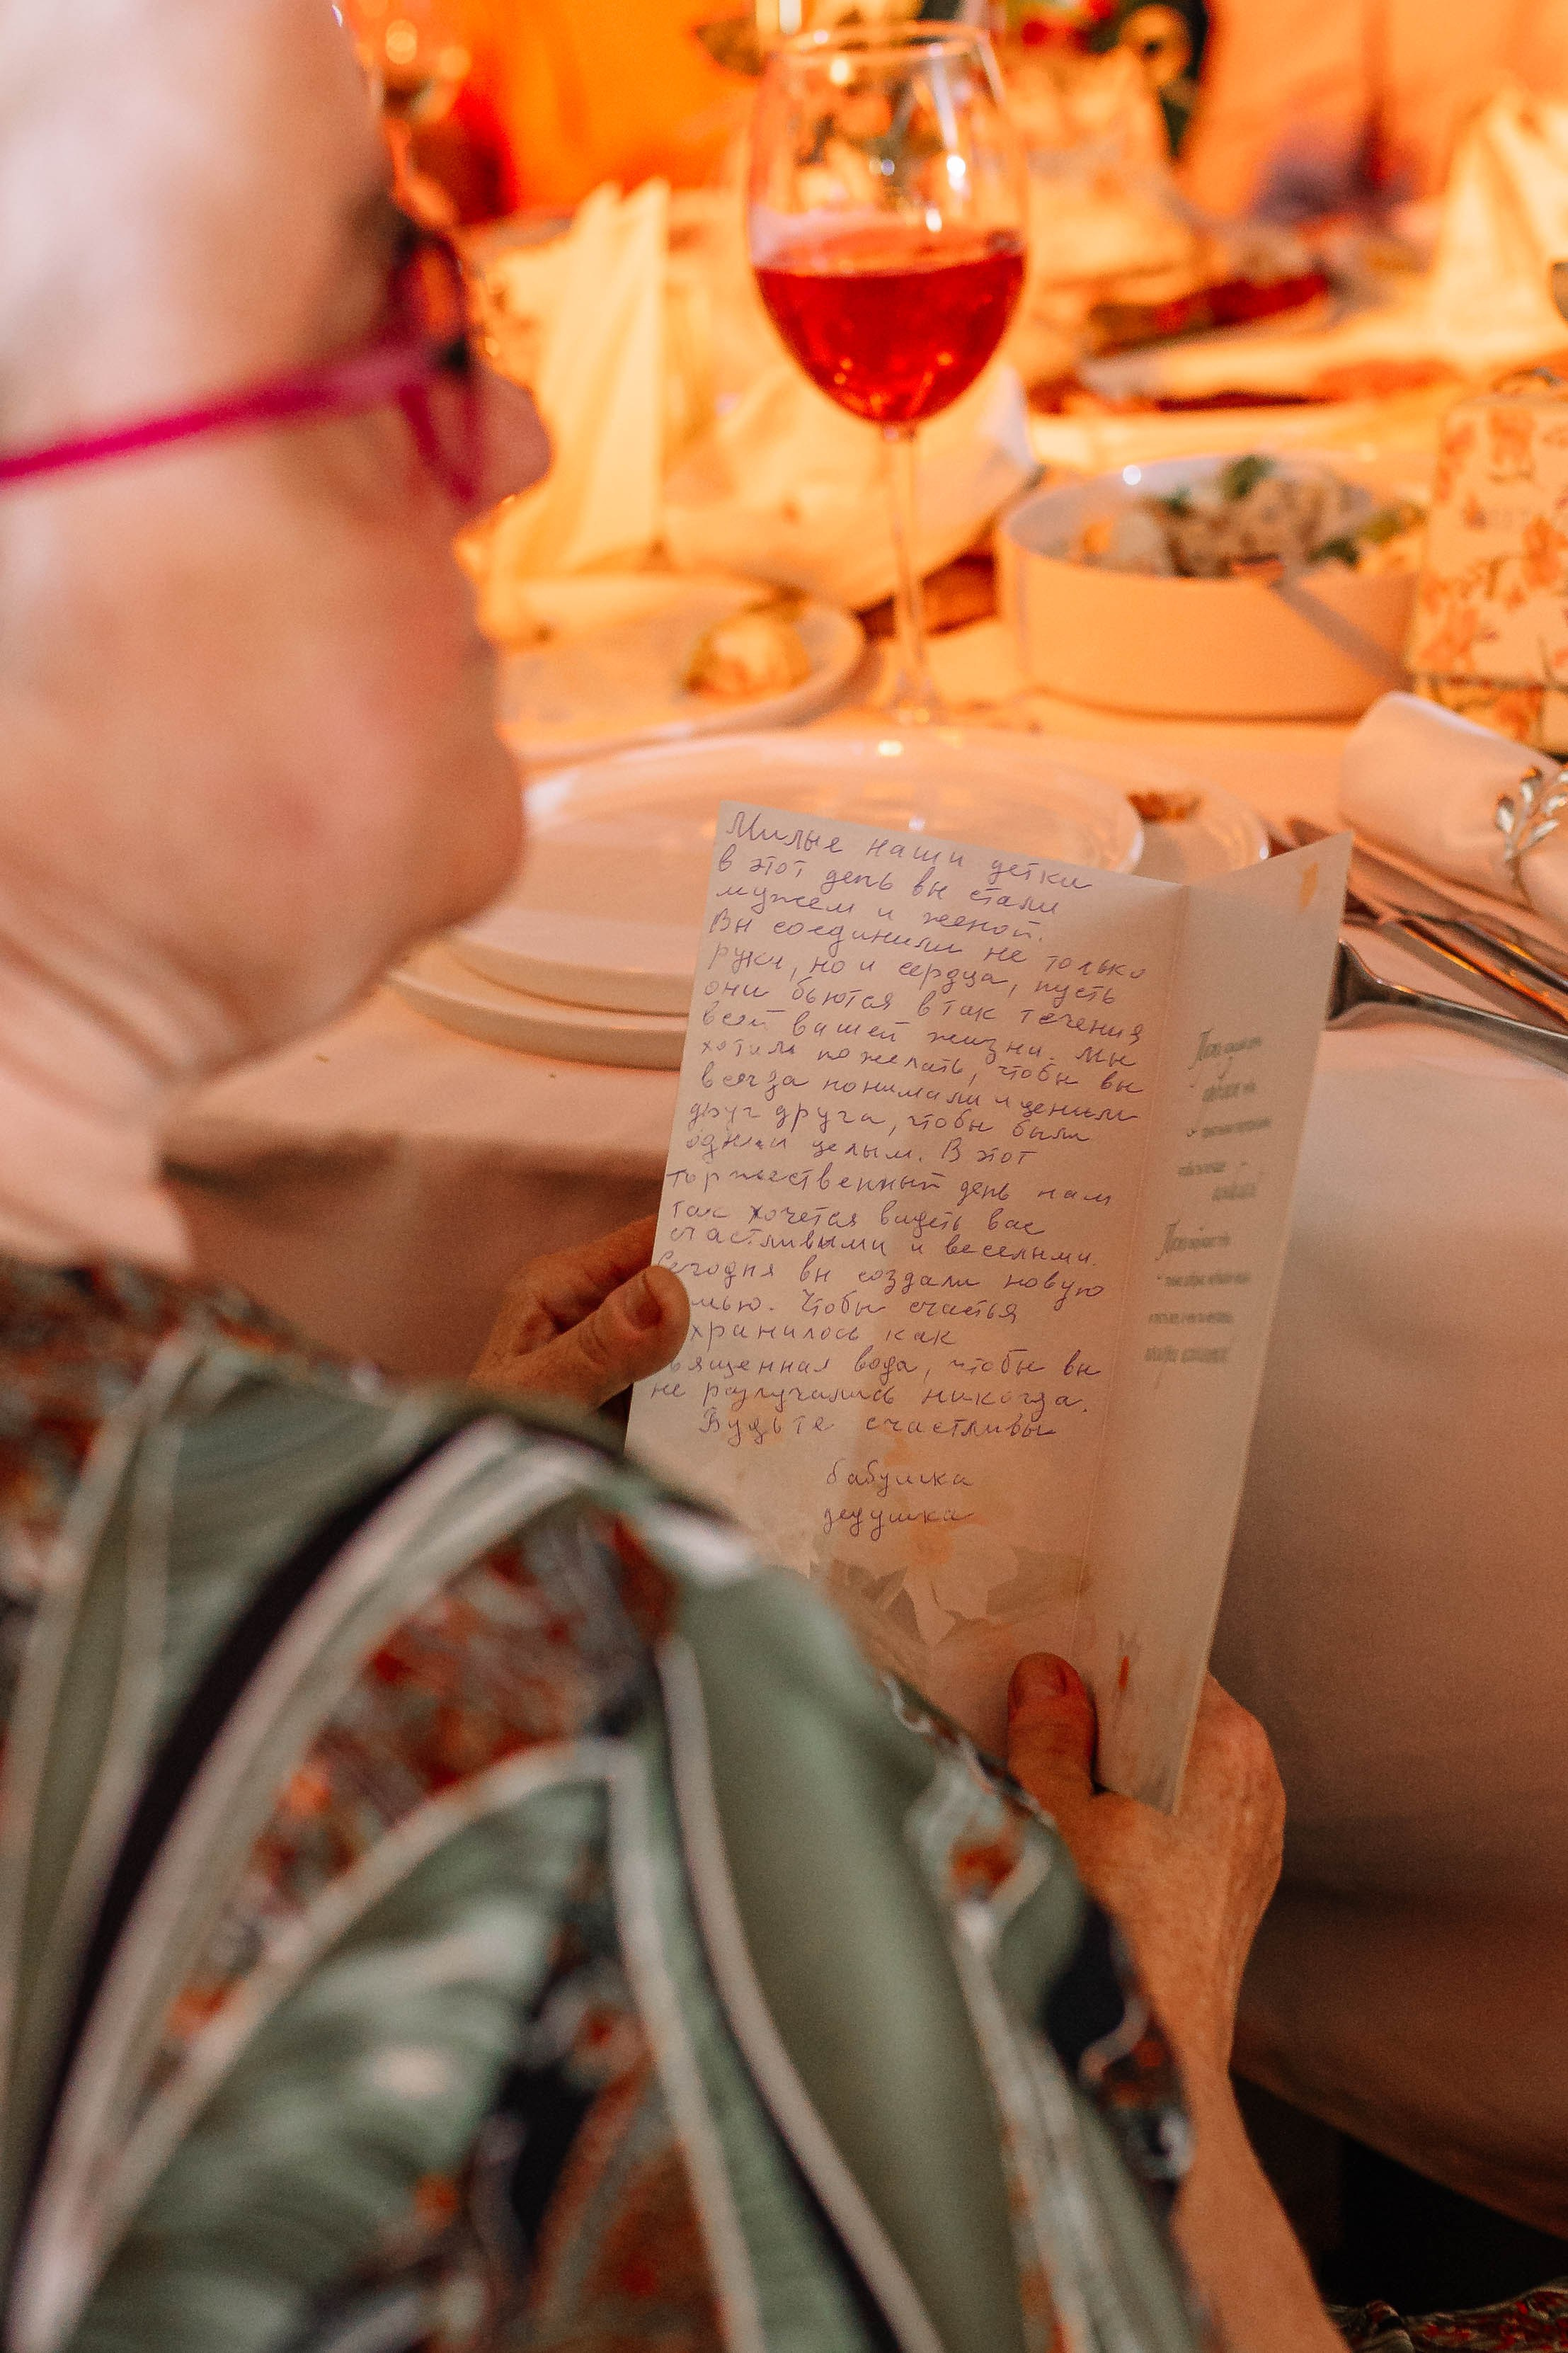 Милые наши детки
в этот день вы стали
мужем и женой.
Вы соединили не только
руки, но и сердца, пусть
они бьются в так течения
всей вашей жизни. Мы
хотим пожелать, чтобы вы
всегда понимали и ценили
друг друга, чтобы были
одним целым. В этот
торжественный день нам
так хочется видеть вас
счастливыми и веселыми.
Сегодня вы создали новую
мью. Чтобы счастья
хранилось как
священная вода, чтобы вы
не разлучались никогда.
Будьте счастливы
бабушка
дедушка